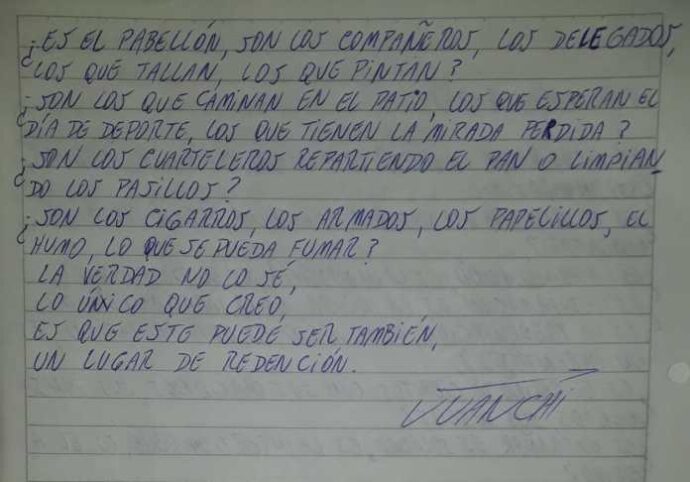 ¿ES EL PABELLÓN, SON LOS COMPAÑEROS, LOS DELEGADOS,
LOS QUE TALLAN, LOS QUE PINTAN?
¿SON LOS QUE CAMINAN EN EL PATIO, LOS QUE ESPERAN EL
DÍA DE DEPORTE, LOS QUE TIENEN LA MIRADA PERDIDA?
¿SON LOS CUARTELEROS REPARTIENDO EL PAN O LIMPIAN
DO LOS PASILLOS?
¿SON LOS CIGARROS, LOS ARMADOS, LOS PAPELILLOS, EL
HUMO, LO QUE SE PUEDA FUMAR?
LA VERDAD NO LO SÉ,
LO ÚNICO QUE CREO,
ES QUE ESTE PUEDE SER TAMBIÉN,
UN LUGAR DE REDENCIÓN.
JUANCHI